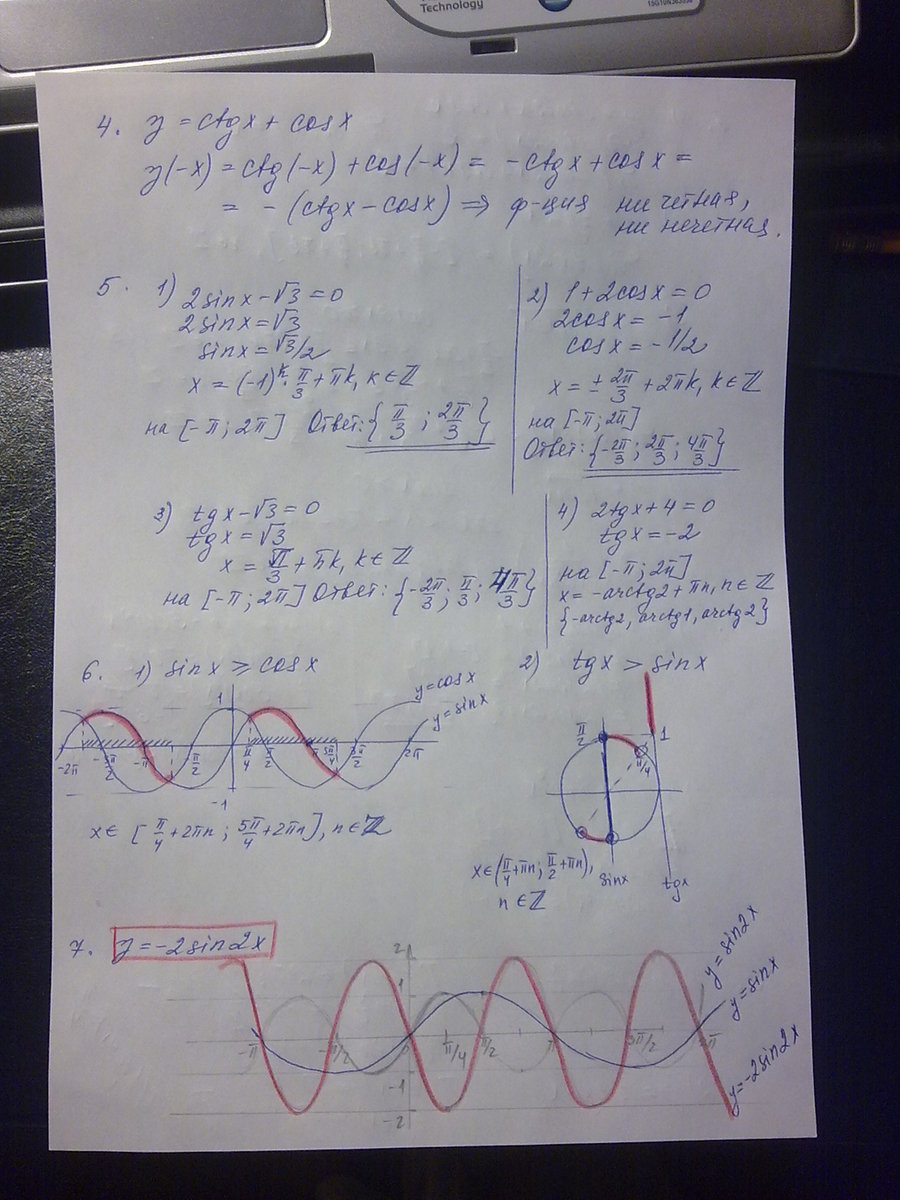 Technology
4. y = ctgx + cosx
y(-x) = ctg(-x) + cos(-x) = -ctgx + cosx =
= - (ctgx - cosx) ⇒ ф-ция ни четная,
ни нечетная.
5. 1) 2sinx - √3 = 0
2sinx = √3
sinx = √3/2
x = (-1)^k · π/3 + πk, k ∈ ℤ
на [-π; 2π] Ответ: {π/3; 2π/3}
2) 1 + 2cosx = 0
2cosx = -1
cosx = -1/2
x = ± 2π/3 + 2πk, k ∈ ℤ
на [-π; 2π]
Ответ: {-2π/3; 2π/3; 4π/3}
3) tgx - √3 = 0
tgx = √3
x = π/3 + πk, k ∈ ℤ
на [-π; 2π] Ответ: {-2π/3; π/3; 4π/3}
4) 2tgx + 4 = 0
tgx = -2
на [-π; 2π]
x = -arctg2 + πn, n ∈ ℤ
{-arctg2, arctg1, arctg2}
6. 1) sinx ≥ cosx
y = cosx
y = sinx
1
-2π -3π/2 -π π/2 π/4 π/2 π 5π/4 3π/2 2π
-1
x ∈ [π/4 + 2πn; 5π/4 + 2πn], n ∈ ℤ
2) tgx > sinx
π/2
1
π/4
x ∈ (π/4 + πn; π/2 + πn),
n ∈ ℤ
sinx
tgx
7. y = -2sin2x
2
1
y = sin2x
y = sinx
y = -2sin2x
-π -π/2 π/4 π/2 π 3π/2 2π
-1
-2